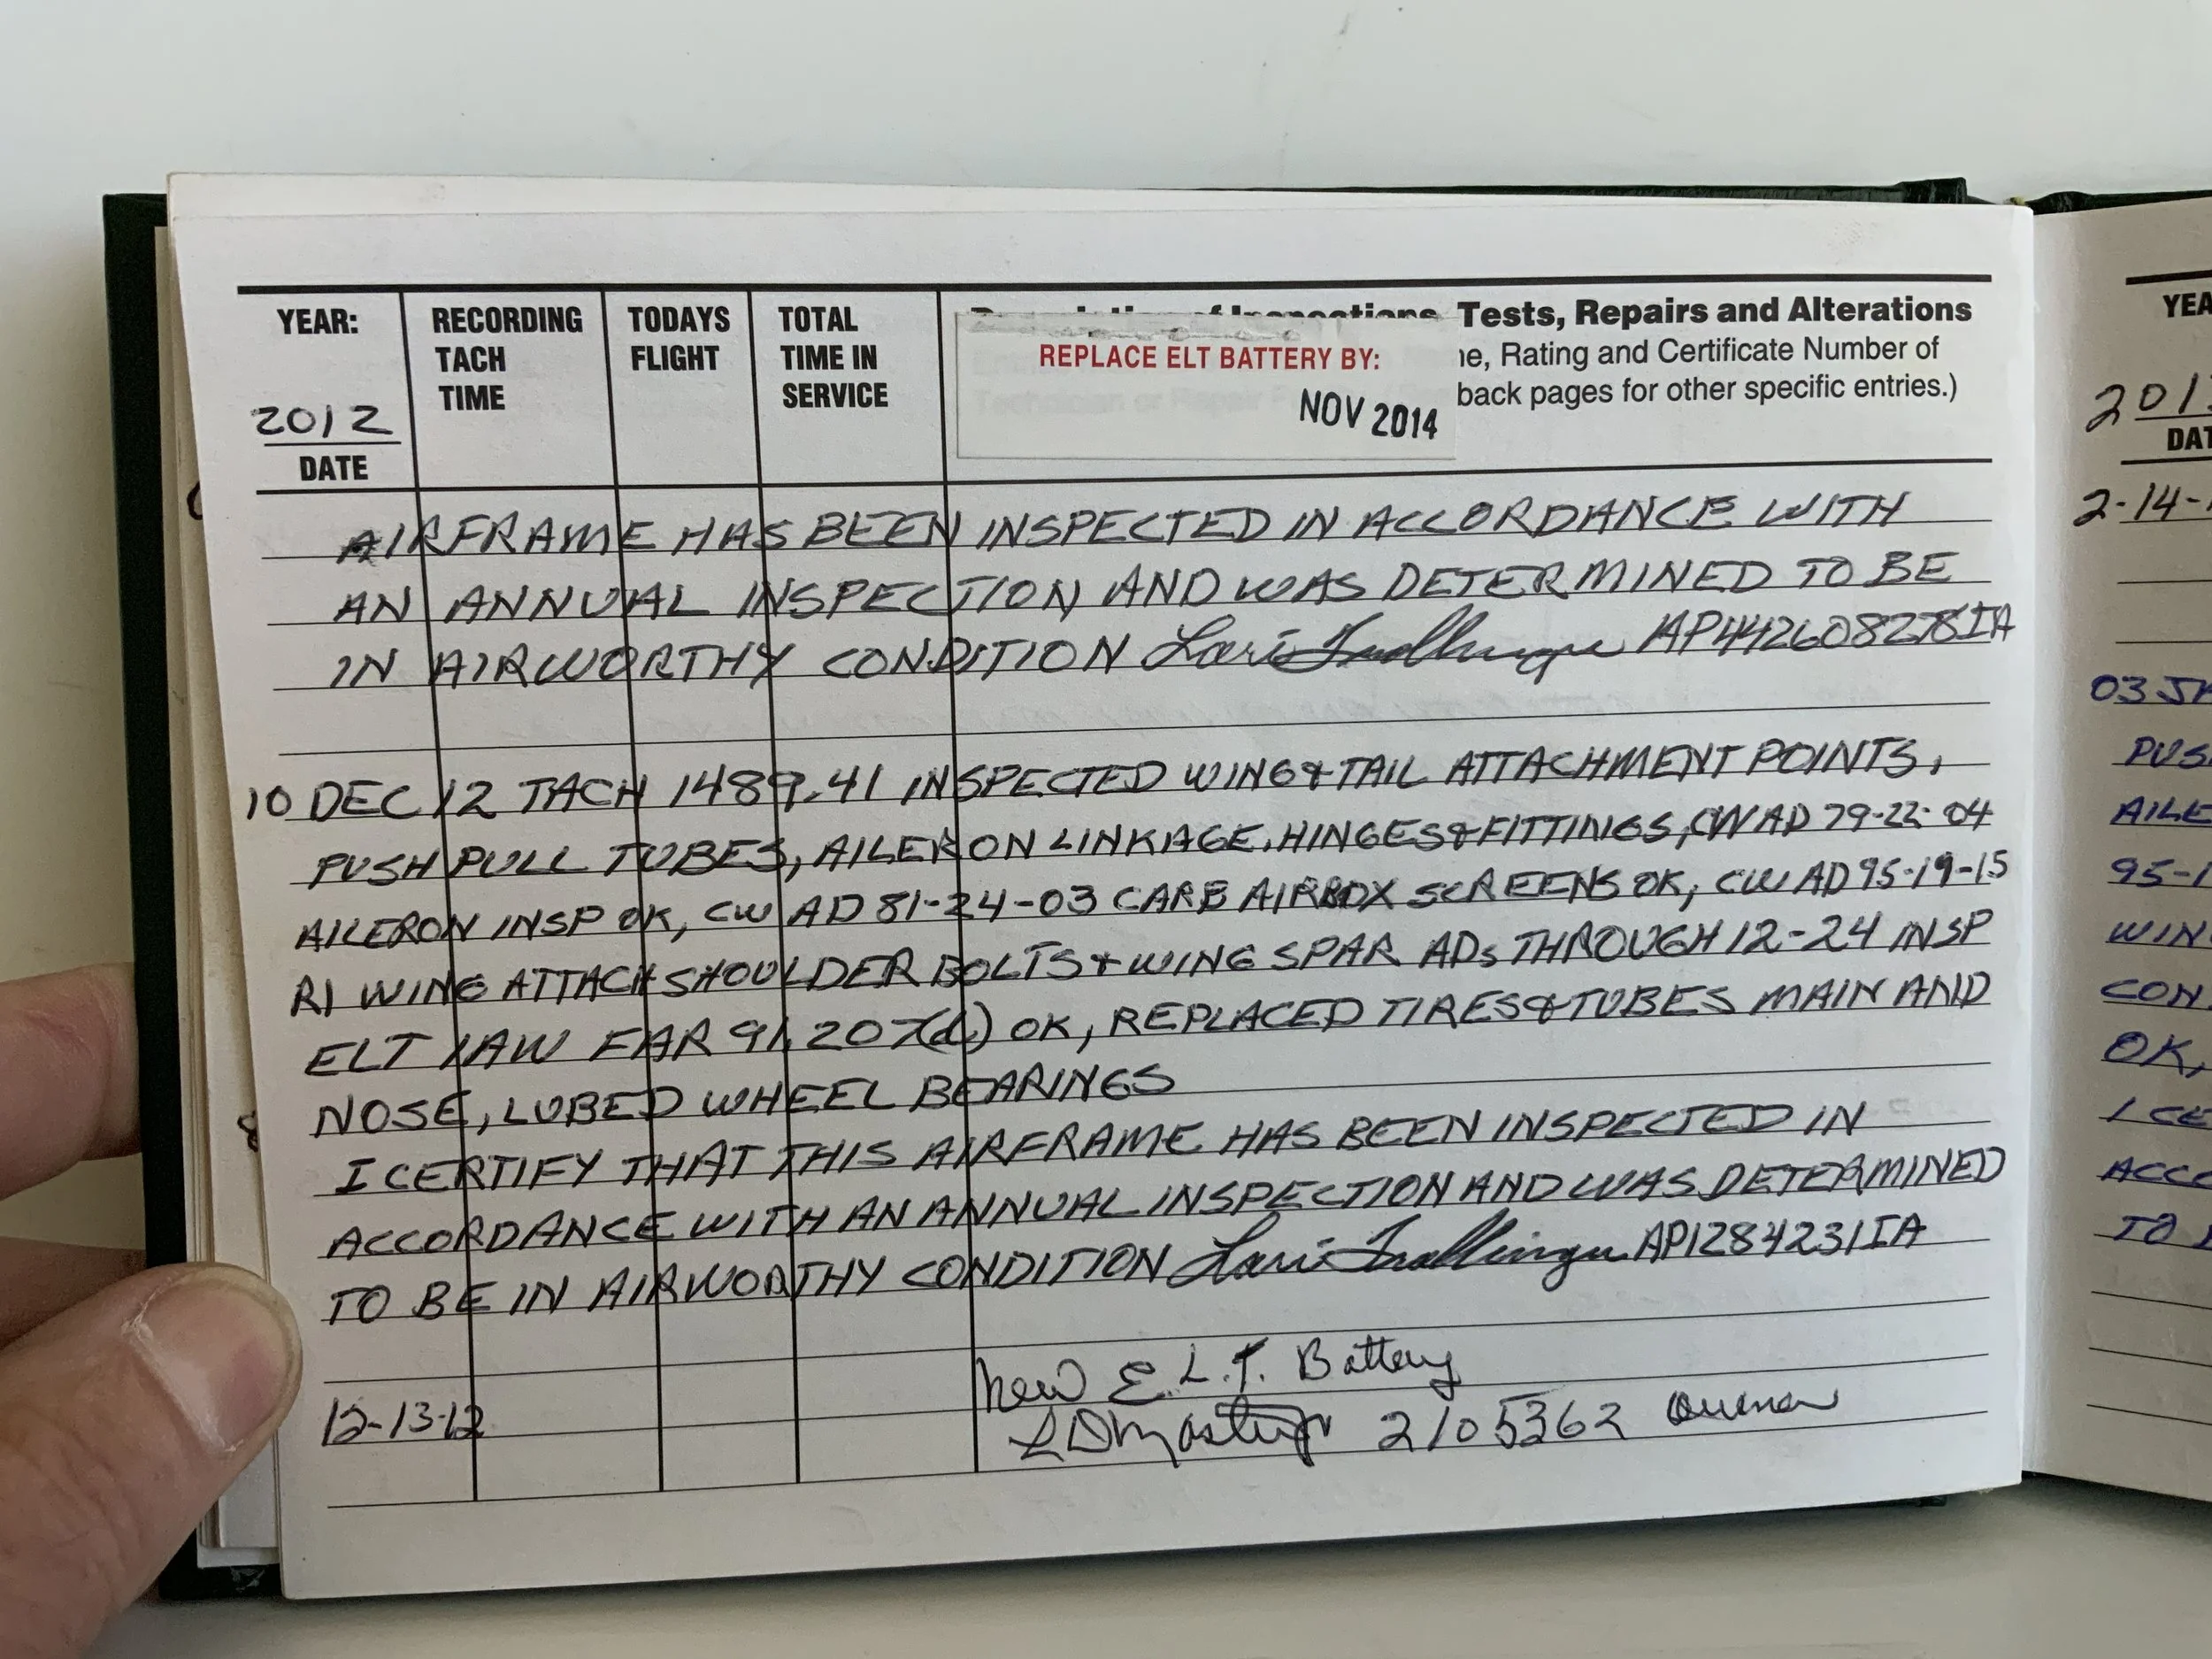 YEAR:
2012
DATE
RECORDING
TACH
TIME
TODAYS
FLIGHT
TOTAL
TIME IN
SERVICE
Tests, Repairs and Alterations
Rating and Certificate Number of
back pages for other specific entries.)
REPLACE ELT BATTERY BY:
NOV 2014
AIRFRAME HAS BEEN INSPECTED IN ACCORDANCE WITH
AN ANNUAL INSPECTION AND WAS DETERMINED TO BE
IN AIRWORTHY CONDITION AP442608278IA
10 DEC 12 TACH 1489.41 INSPECTED WING & TAIL ATTACHMENT POINTS,
PUSH PULL TUBES, AILERON LINKAGE, HINGES & FITTINGS, CW AD 79-22-04
AILERON INSP OK, CW AD 81-24-03 CARB AIRBOX SCREENS OK, CW AD 95-19-15
R1 WING ATTACH SHOULDER BOLTS & WING SPAR ADs THROUGH 12-24 INSP
ELT IAW FAR 91.207(d) OK, REPLACED TIRES & TUBES MAIN AND
NOSE, LUBED WHEEL BEARINGS
I CERTIFY THAT THIS AIRFRAME HAS BEEN INSPECTED IN
ACCORDANCE WITH AN ANNUAL INSPECTION AND WAS DETERMINED
TO BE IN AIRWORTHY CONDITION AP1284231IA
New E.L.T. Battery
12-13-12 2105362 Owner
2-14-
OK,